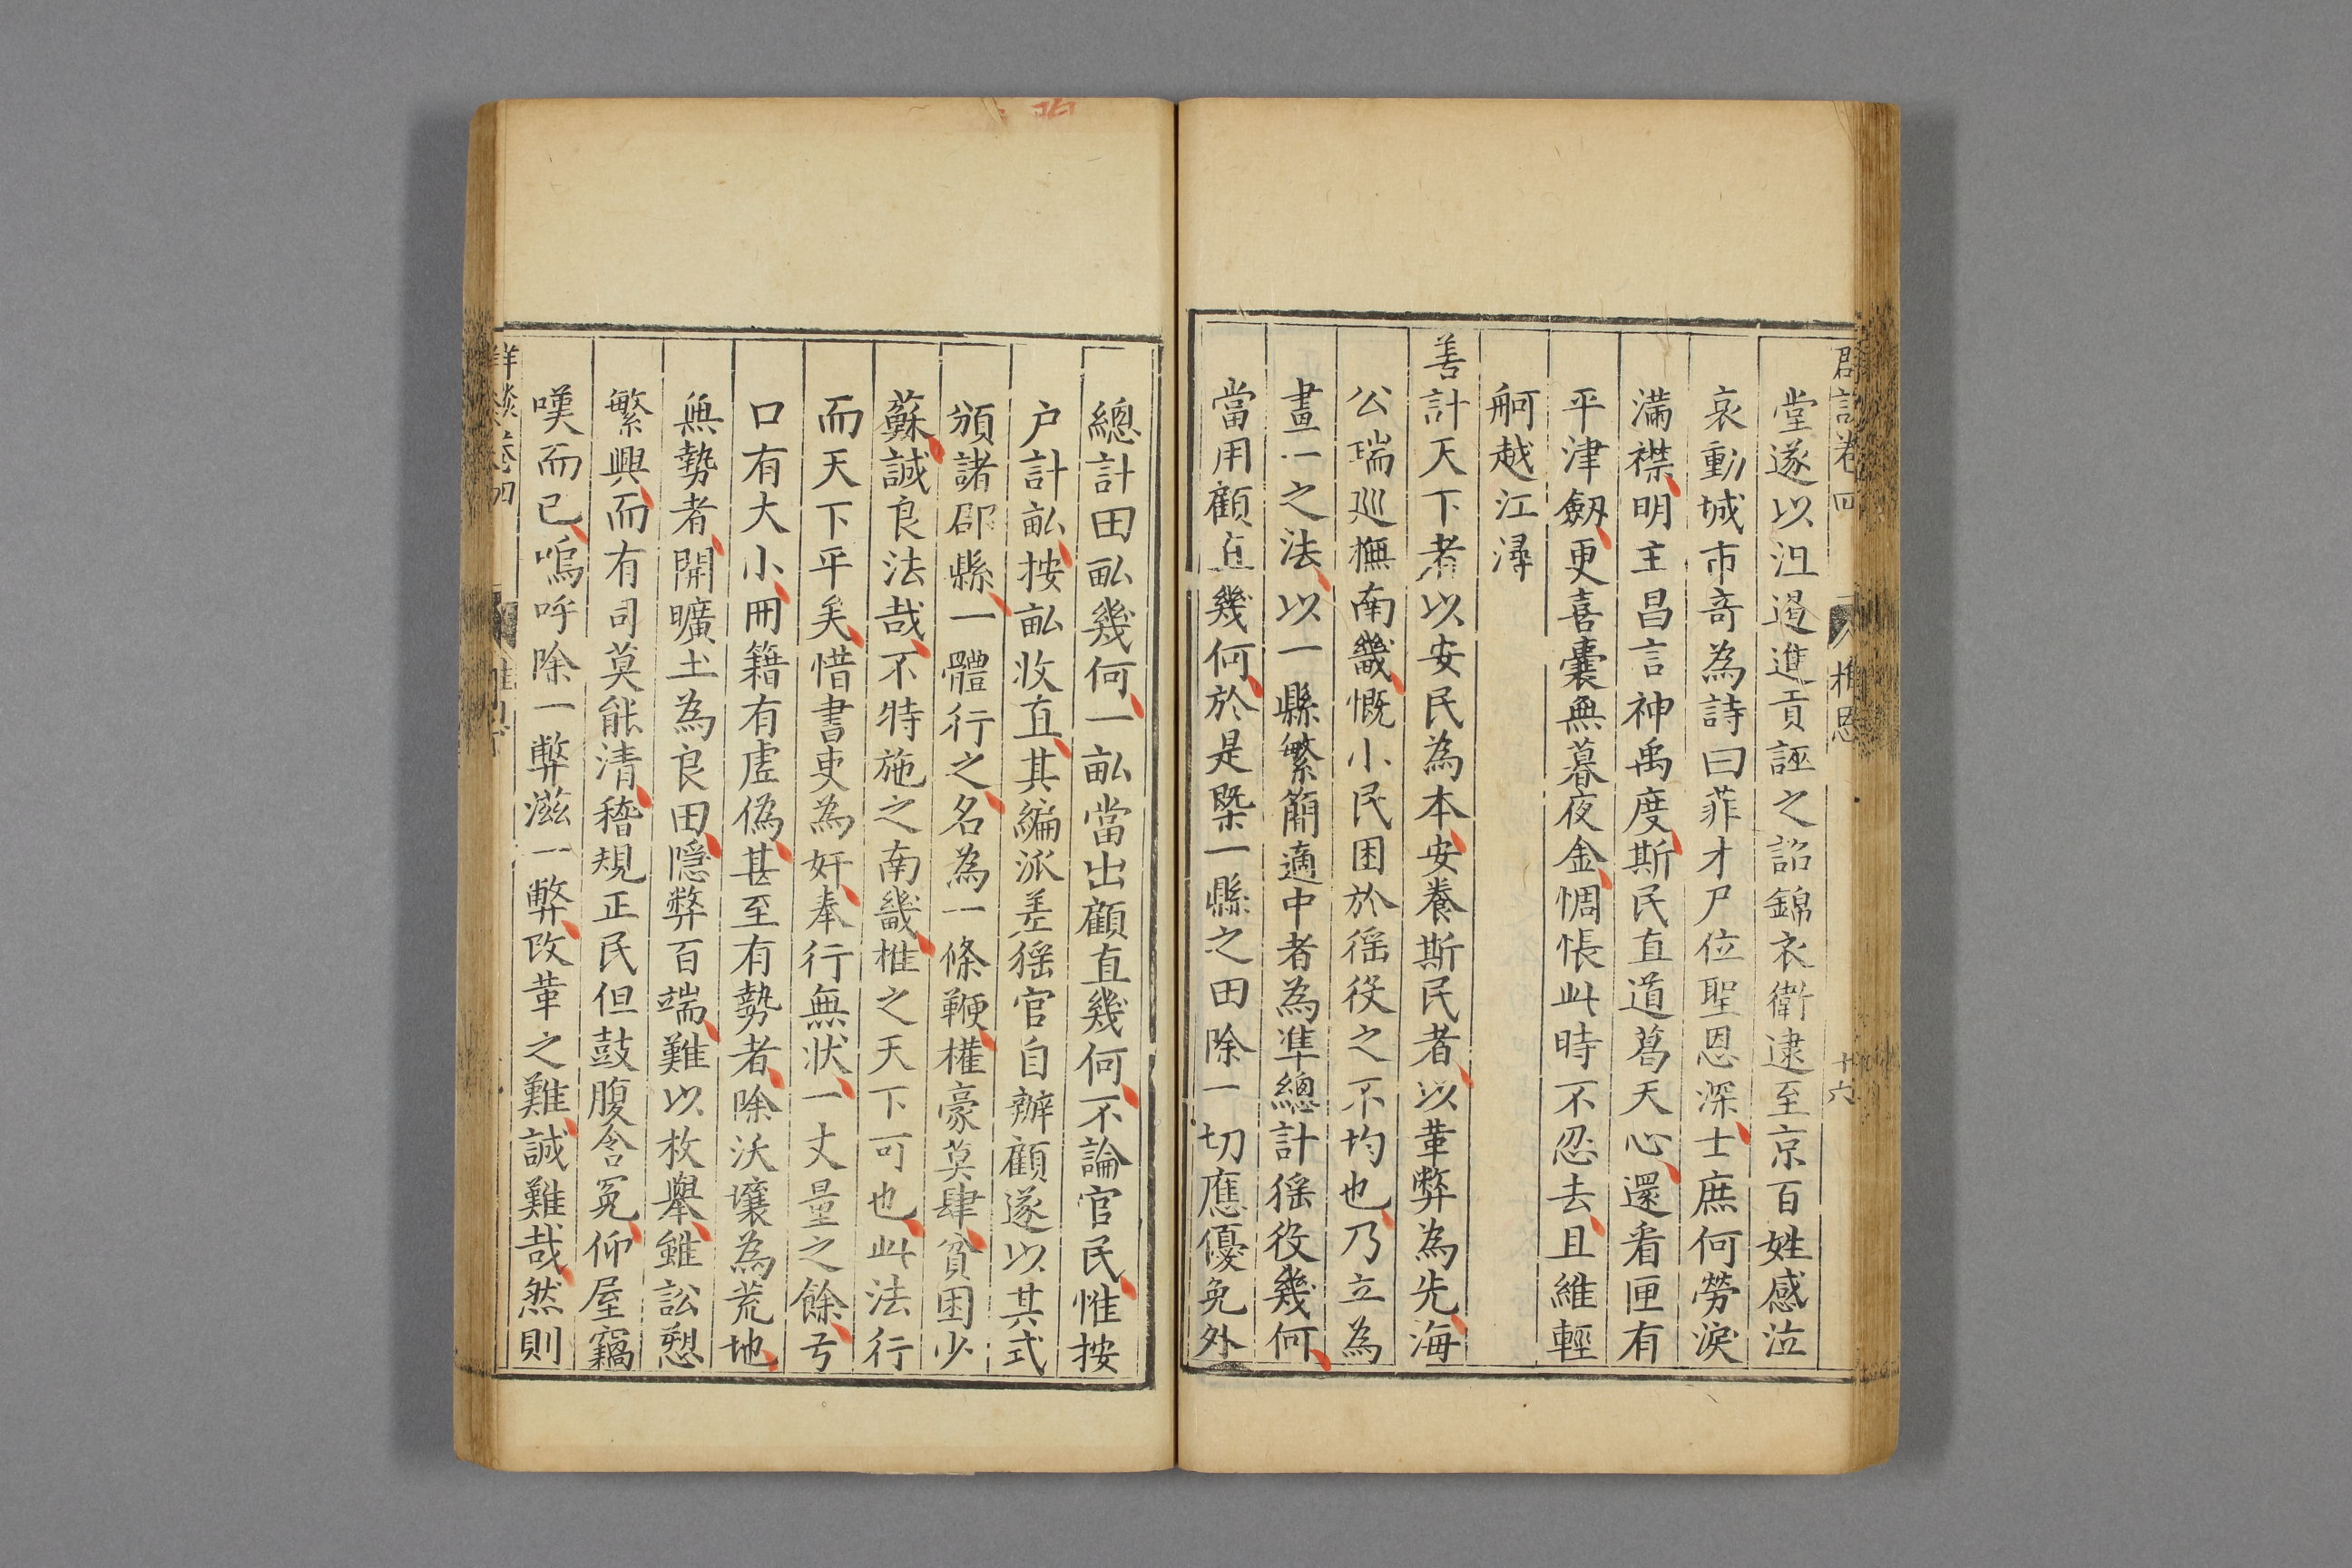 堂遂以沮遏進貢誣之詔錦衣衛逮至京百姓感泣
哀動城市竒為詩曰菲才尸位聖恩深士庶何勞淚
滿襟明主昌言神禹度斯民直道葛天心還看匣有
平津劔更喜囊無暮夜金惆悵此時不忍去且維輕
舸越江潯
善計天下者以安民為本安養斯民者以革弊為先海
公瑞廵撫南畿慨小民困於徭役之不均也乃立為
畫一之法以一縣繁簡適中者為準總計徭役幾何
當用顧直幾何於是槩一縣之田除一切應優免外
總計田畆幾何一畆當出顧直幾何不論官民惟按
户計畆按畆收直其編派差徭官自辦顧遂以其式
頒諸郡縣一體行之名為一條鞭權豪莫肆貧困少
蘇誠良法哉不特施之南畿推之天下可也此法行
而天下平矣惜書吏為奸奉行無状一丈量之餘弓
口有大小冊籍有虗偽甚至有勢者除沃壤為荒地
無勢者開曠土為良田隠弊百端難以枚舉雖訟愬
繁興而有司莫能清稽規正民但鼓腹含冤仰屋竊
嘆而已嗚呼除一弊滋一弊改革之難誠難哉然則